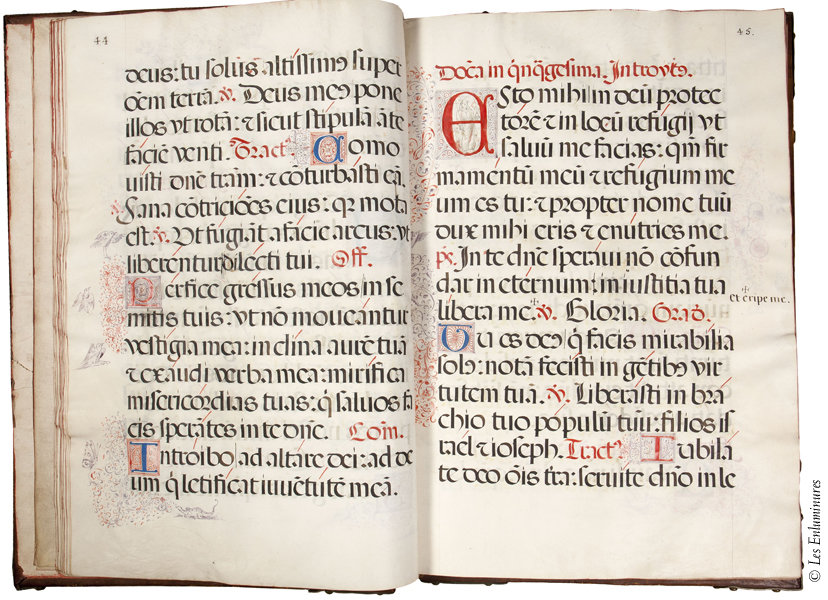 44
deus: tu solus altissimꝰ super
oēm terrā. ℣. Deus meꝰ pone
illos vt rotā: ⁊ sicut stipulā āte
faciē venti. Tractꝰ. Como
uisti dn̄e trām: ⁊ cōturbasti eā.
Sana cōtriciōes eius: qr mota
est. ℣. Vt fugiāt a facie arcus: vt
liberentur dilecti tui. Off.
Perfice gressus meos in se
mitis tuis: vt nō moueantur
vestigia mea: inclina aurē tuā
⁊ exaudi verba mea: mirifica
misericordias tuas: q̄ saluos fa
cis sperātes in te dn̄e. Com̄.
Introibo ad altare dei: ad de
um q̄ letificat iuuētutē meā.
45.
Dōca in q̄nq̄gesima. Introytꝰ.
ESto mihi in deū protec
torē ⁊ in locū refugij vt
saluū me facias: qm̄ fir
mamentū meū ⁊ refugium me
um es tu: ⁊ propter nomē tuū
dux mihi eris ⁊ enutries me.
p̄s. In te dn̄e speraui nō cōfun
dar in eternum: in iustitia tua
libera me. ℣. Gloria. Grad.
et eripe me.
Tu es deꝰ q̄ facis mirabilia
solꝰ: notā fecisti in gētibꝰ vir
tutem tuā. ℣. Liberasti in bra
chio tuo populū tuū: filios is
rael ⁊ ioseph. Tractꝰ. Iubila
te deo ōis tr̄a: seruite dn̄o in le
© Les Enluminures